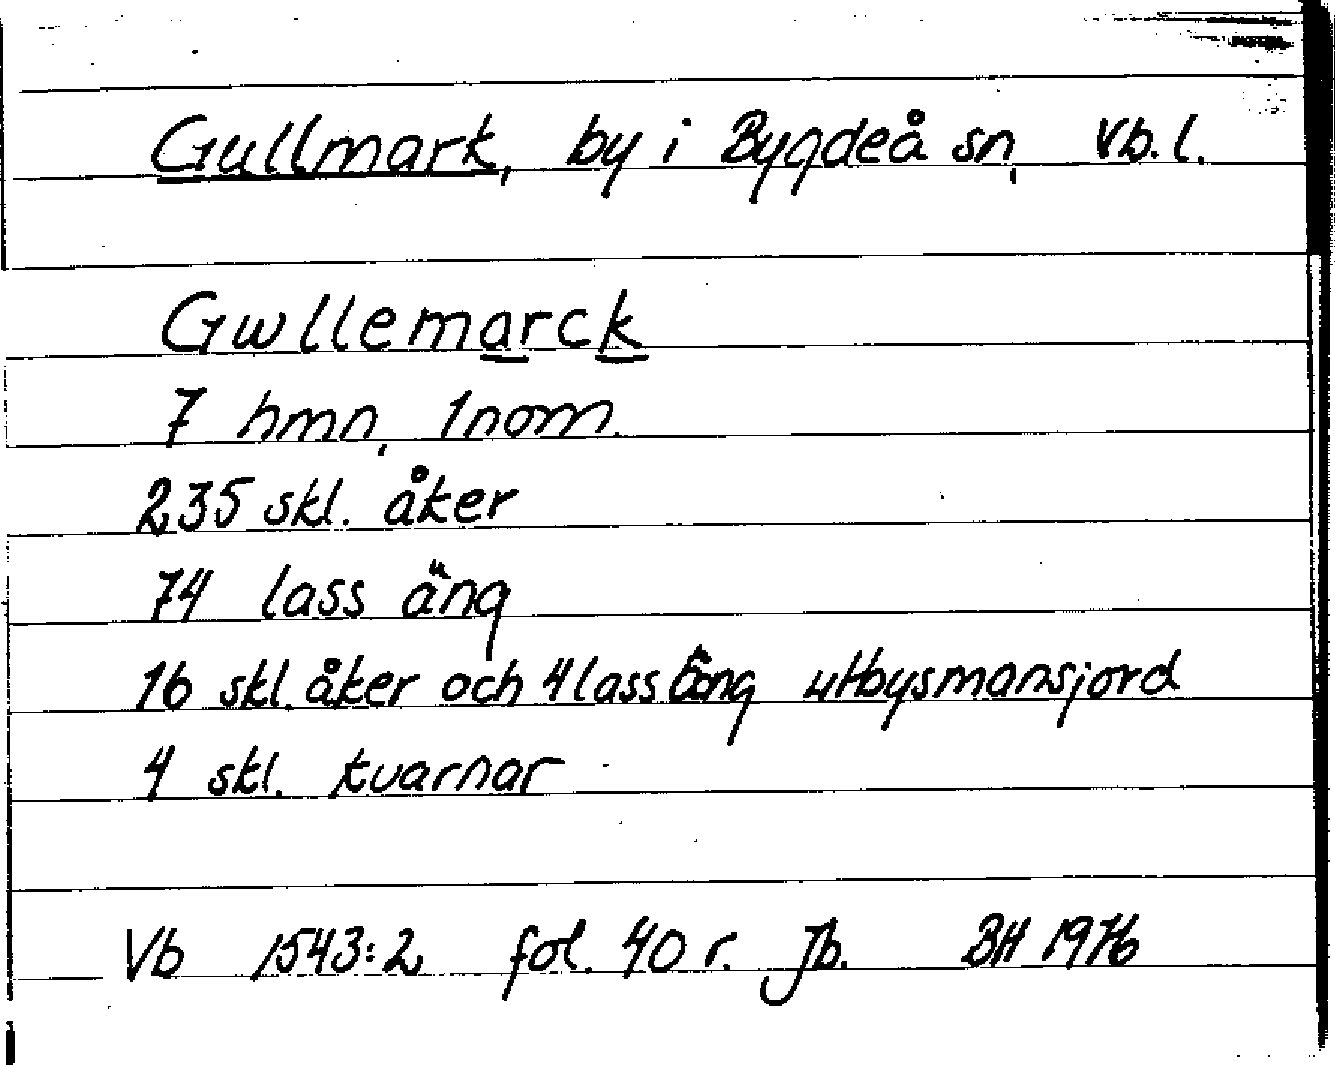 Gullmark, by i Bygdeå sn, Vb. l.
Gwllemarck
7 hmn, 1 nom.
235 skl. åker
74 lass äng
16 skl. åker och 4 lass äng utbysmansjord
4 skl. kvarnar
Vb 1543:2 fol. 40 r. Jb. BH 1976